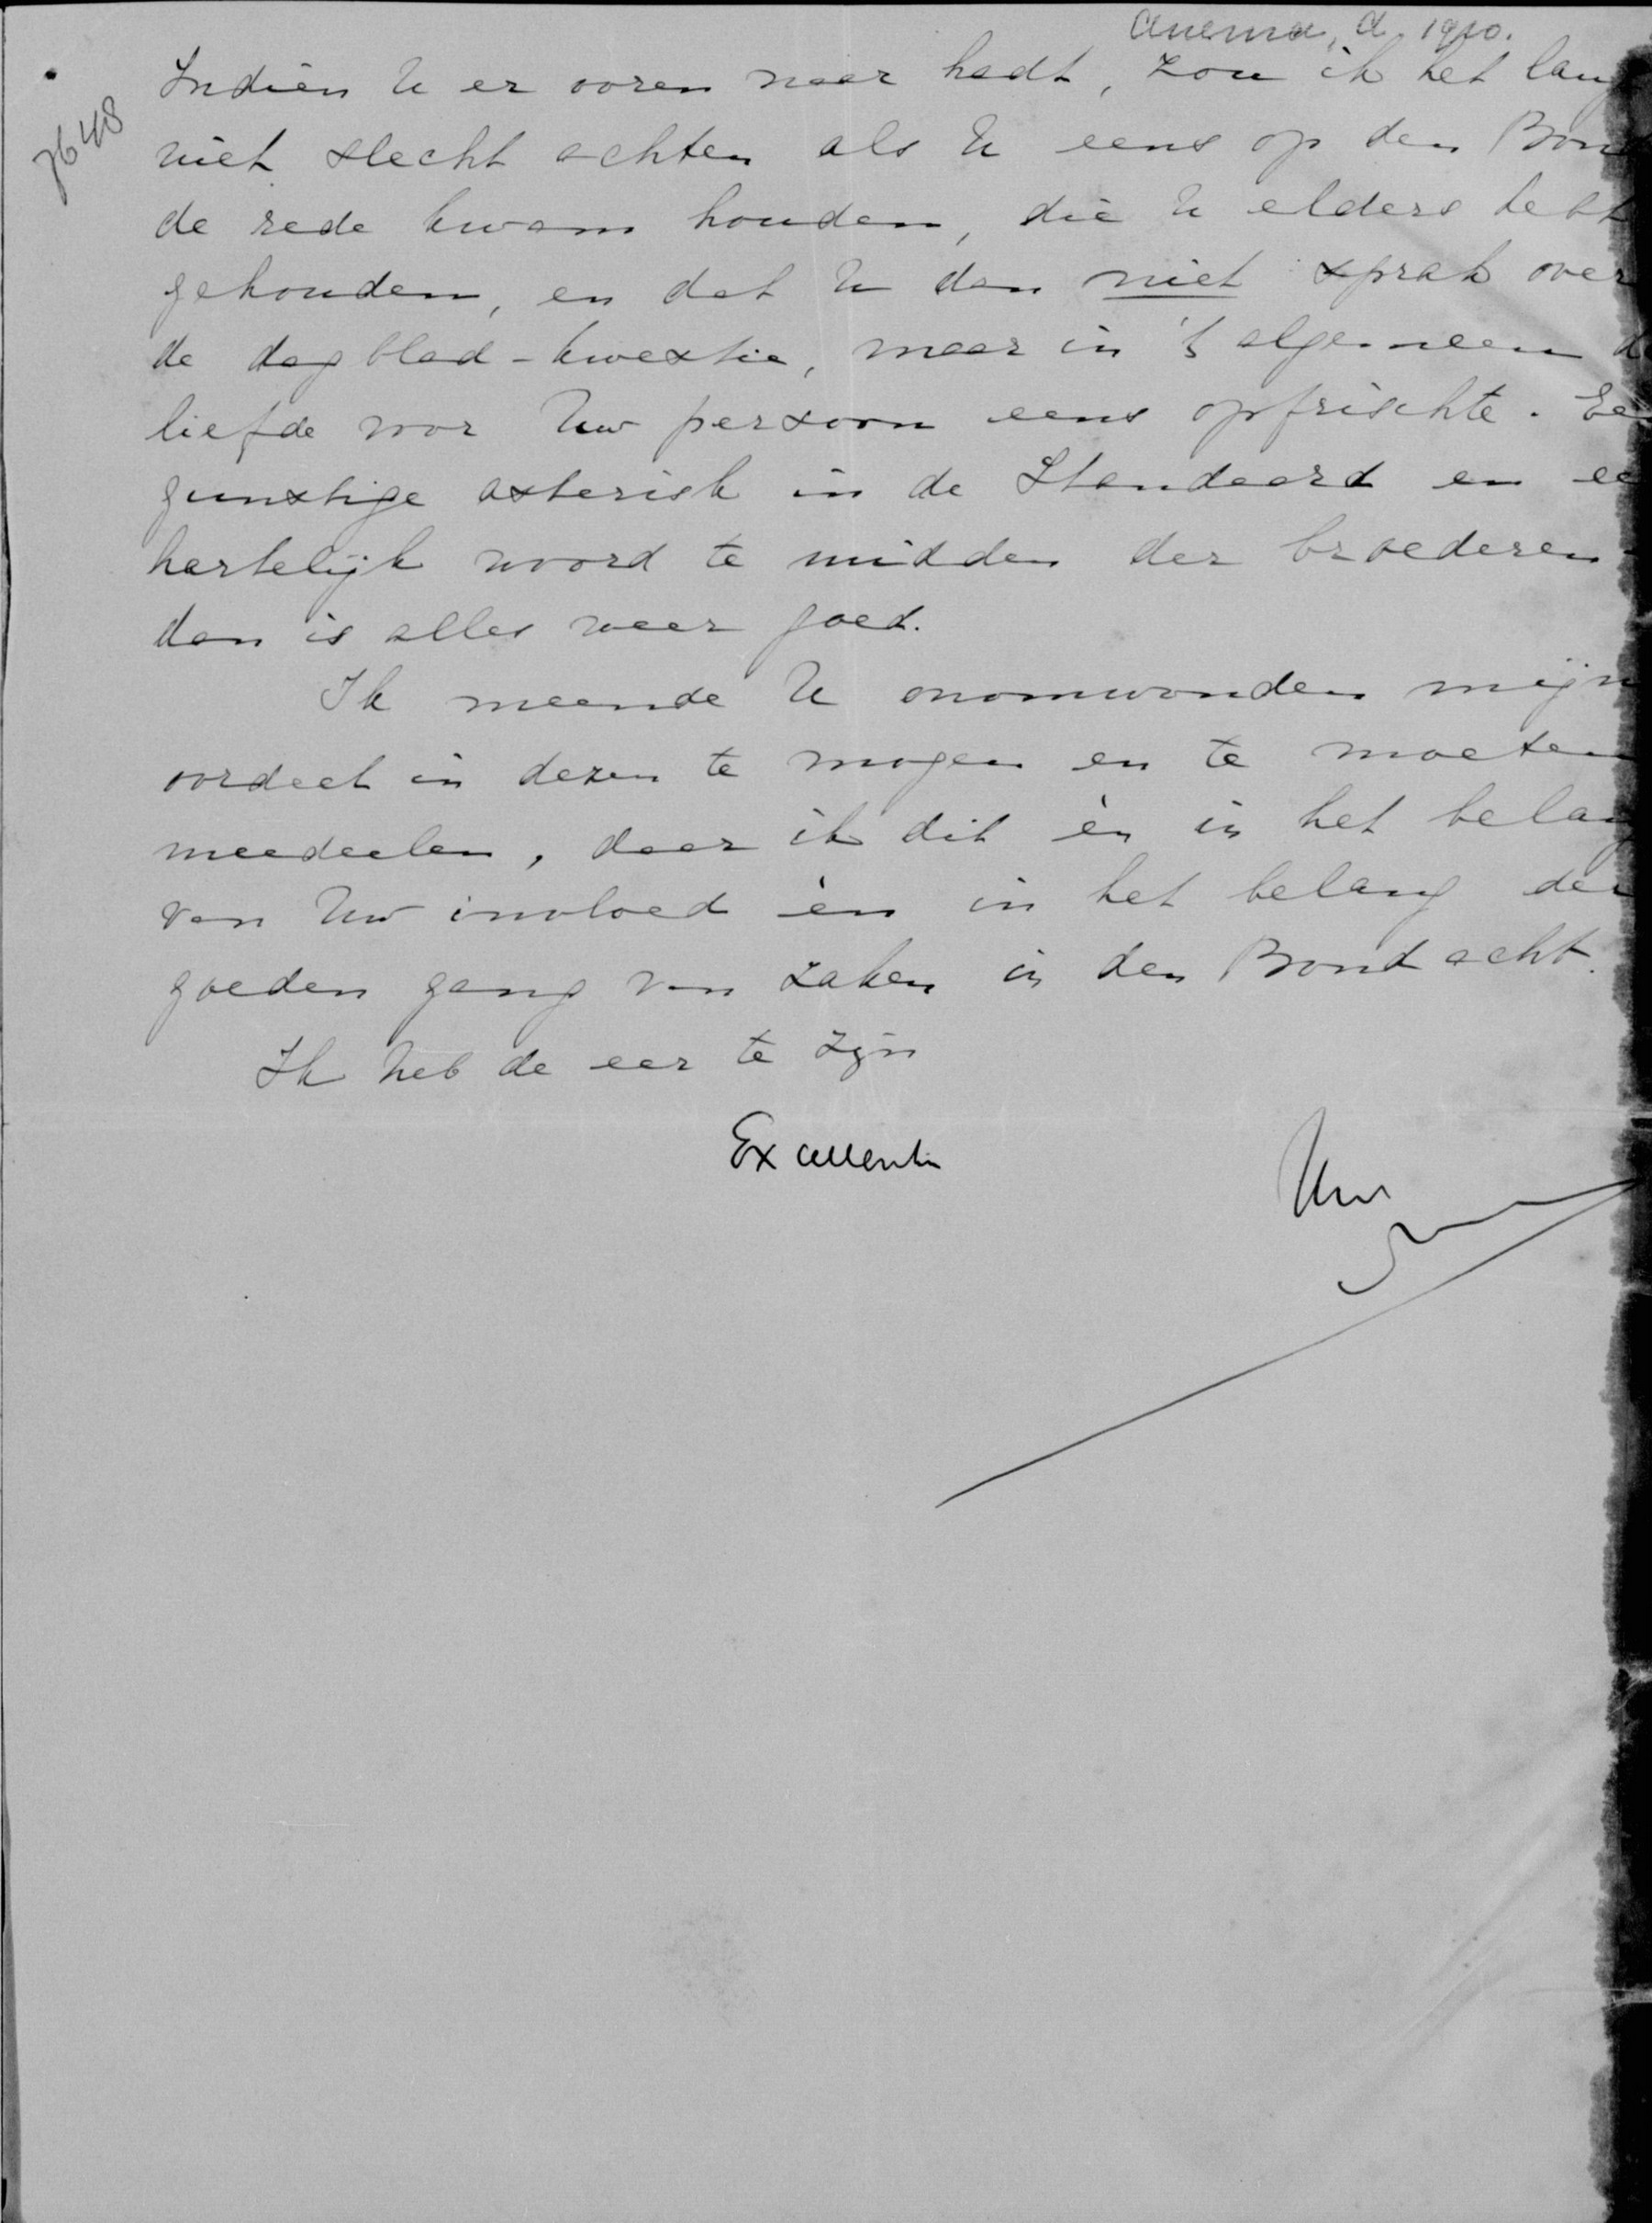 Anema, A. 1910.
7648
Indien U er ooren naar hadt, zou ik het lang
niet slecht achten als U eens op den Bond
de rede kwam houden, die U elders hebt
gehouden, en dat U dan niet sprak over
de dagblad-kwestie, maar in 't algemeen d
liefde voor Uw persoon eens opfrischte. Ee
gunstige asterisk in de Standaard en ee
hartelijk woord te midden der broederen
dan is alles weer goed.
Ik meende U onomwonden mijn
oordeel in dezen te mogen en te moeten
meedeelen, daar ik dit èn in het belang
van Uw invloed èn in het belang den
goeden gang van zaken in den Bond acht.
Ik heb de eer te zijn
Excellentie
Uw